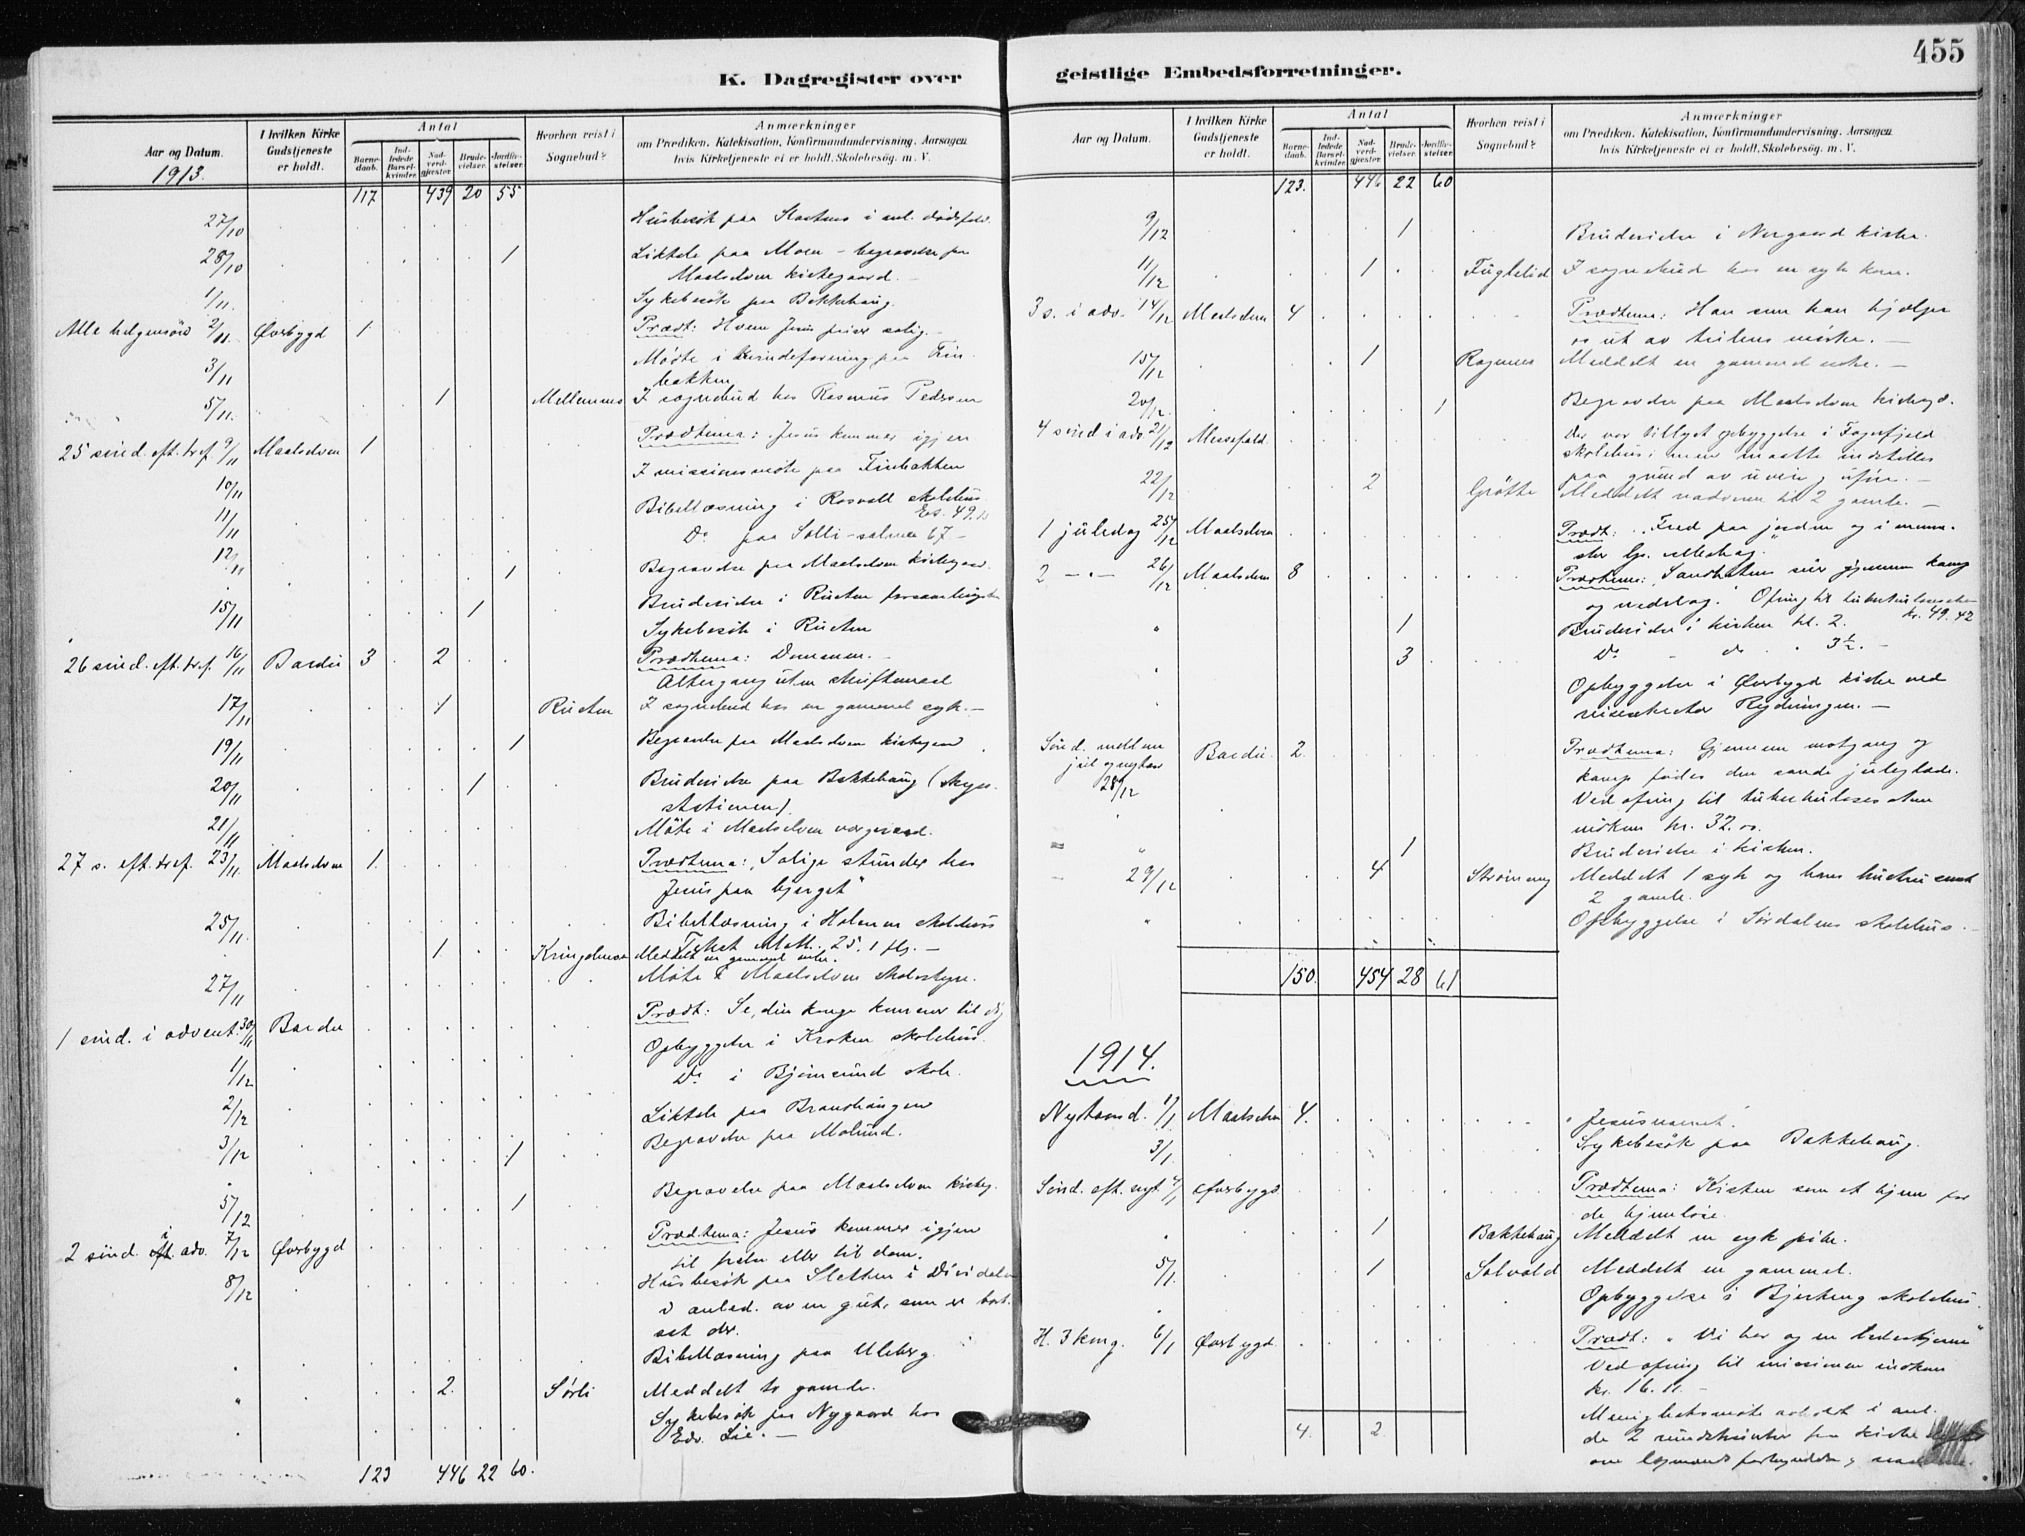 455
K. Dagregister over
geistlige Embedsforretninger.
Aar og Datum.
1913.
I hvilken Kirke Gudstjeneste er holdt.
Antal
Barne-daab.
Ind-ledede Barsel-kvinder.
Nad-verd-gjester.
Brude-vielser.
Jordfæ-stelser.
Hvorhen reist i Sognebud?
Anmærkninger
om Prædiken, Katekisation, Konfirmandundervisning, Aarsagen
hvis Kirketjeneste ei er holdt, Skolebesøg, m. V.
117 439 20 55
27/10 Husbesök paa i anl. dødsfald.
28/10 1 Liktale paa Moen - begravelse paa
Maalselven kirkegaard. -
1/11. Sykebesök paa Bakkehaug.
Alle helgensönd 2/11. Øverbygd 1 Prædt: Hvem Jesus priser salig. -
3/11 Möte i kvindeforening paa Fin-
bakken
5/11. 1 Mellemnes I sognebud hos Rasmus Pedersen
25 sønd. eft. tref. 9/11 Maalselven 1 Prædtema: Jesus kommer igjen
I missionsmöte paa Finbakken
10/11 Bibellæsning i Rosvoll skolehus
Es. 49.
11/11 Do paa Solli - salme 67 -
12/11 1 Begravelse paa Maalselven kirkegaard
15/11 1 Brudevielse i Rusten forsamlingshus
Sykebesök i Rusten
26 sönd. eft. tref. 16/11 Bardu 3 2 Prædtema: Dommen. -
Altergang uten skriftemaal
17/11 1 Rusten I sognebud hos en gammel syk. -
19/11 1 Begravelse paa Maalselven kirkegaard
20/11 1 Brudevielse paa Bakkehaug (Skyss-
stationen).
21/11 Möte i Maalselven vergeraad.
27 s. eft. tref. 23/11. Maalselven 1. Prædtema: "Salige stunder hos
Jesus paa bjerget"
25/11. Bibellæsning i Holmen skolehus
Tekst Matt. 25. 1 flg. -
1 Meddelt en gammel enke.
27/11 Möte i Maalselven skolestyre.
1 sönd. i advent. 30/11 Bardu Prædt: Se, din konge kommer til dig
Opbyggelse i Kroken skolehus.
1/12 Do i Bjömsund skole.
2/12 Liktale paa Brandhaugen
3/12 1 Begravelse paa Molund.
5/12 1 Begravelse paa Maalselven kirkeg.
2 sönd. i adv. 7/12 Øverbygd Prædtema: Jesus kommer igjen
til frelse eller til dom.
8/12 Husbesök paa Sletten i Dividalen
i anled. av en gut, som er bort-
sat der.
Bibellæsning paa Uleberg.
" 2. Sørli Meddelt to gamle.
Sykebesök paa Nygaard hos
Edv. Lie. -
123 446 22 60.
Aar og Datum.
I hvilken Kirke Gudstjeneste er holdt.
Antal
Barne-daab.
Ind-ledede Barsel-kvinder.
Nad-verd-gjester.
Brude-vielser.
Jordfæ-stelser.
Hvorhen reist i Sognebud?
Anmærkninger
om Prædiken, Katekisation, Konfirmandundervisning, Aarsagen
hvis Kirketjeneste ei er holdt, Skolebesøg, m. V.
123. 446 22 60
9/12 1 Brudevielse i kirke.
11/12 1 Fuglelid I sognebud hos en syk kone.
3 s. i adv. 14/12 Maalselven 4 Prædtema: Han som kan hjælpe
os ut av tvilens mörke. -
15/12 1 Meddelt en gammel enke. -
20/12. 1 Begravelse paa Maalselven kirkegd.
4 sönd i adv 21/12 Messefald. Der var tillyst opbyggelse i Fagerfjeld
skolehus; men maatte indstilles
paa grund av uveir og uföre. -
22/12 2 Grötte Meddelt nadveren til 2 gamle. -
1 juledag 25/12 Maalselven Prædt: "Fred paa jorden og i menne-
sker Gs. velbehag."
2 - " - 26/12 Maalselven 8 Prædtema: "Sandhetens seir gjennem kamp
og nederlag." Ofring til tuberkulosesaken
kr. 49.42
" 1 Brudevielse i kirken kl. 2.
" 3 Do - do " 3½. -
Opbyggelse i Øverbygd kirke ved
reisesekretær Rydningen. -
Sönd. mellem
jul og nytaar
28/12 Bardu. 2. Prædtema: Gjennem motgang og
kamp födes den sande juleglæde.
Ved ofring til tuberkulosesaken
indkom kr. 32.00.
" 1 Brudevielse i kirken.
29/12 4 Strömmeng Meddelt 1 syk og hans hustru samt
2 gamle.
" Opbyggelse i Sördalens skolehus. -
150. 454 28 61
1914.
Nytaarsd. 1/1 Maalselven 4. "Jesusnavnet".
3/1. Sykebesök paa Bakkehaug.
Sönd. eft. nyt. 4/1 Øverbygd. Prædtema: Kirken som et hjem for
de hjemlöse.
" 1 Bakkehaug Meddelt en syk pike.
5/1. 1 Solvold Meddelt en gammel.
" Opbyggelse i Bjerkeng skolehus.
H. 3 kong. 6/1 Øverbygd. Prædt: "Vi har og en ledestjerne"
Ved ofring til missionen indkom
kr. 16.11. -
Menighetsmöte avholdt i anl.
4. 2 de 2 rundskrivelser fra kirkedep.
om